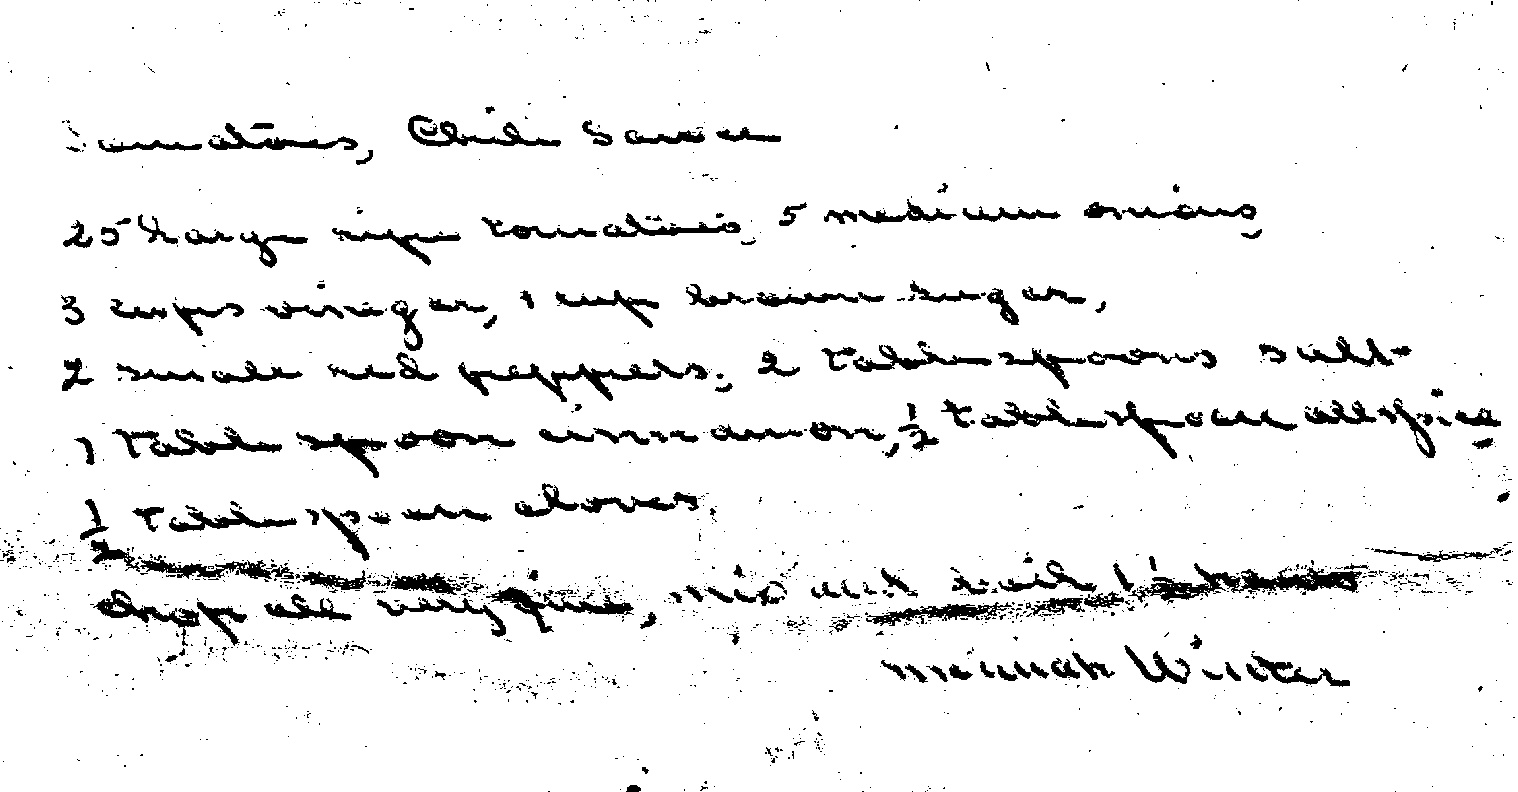 Tomatoes, Chili Sauce
25 large ripe tomatoes, 5 medium onions,
3 cups vinegar, 1 cup brown sugar,
2 small red peppers, 2 tablespoons salt
1 table spoon cinnamon, ½ tablespoon allspice
½ tablespoon cloves.
Chop all very fine, mix and boil 1 ½ hours
Winter